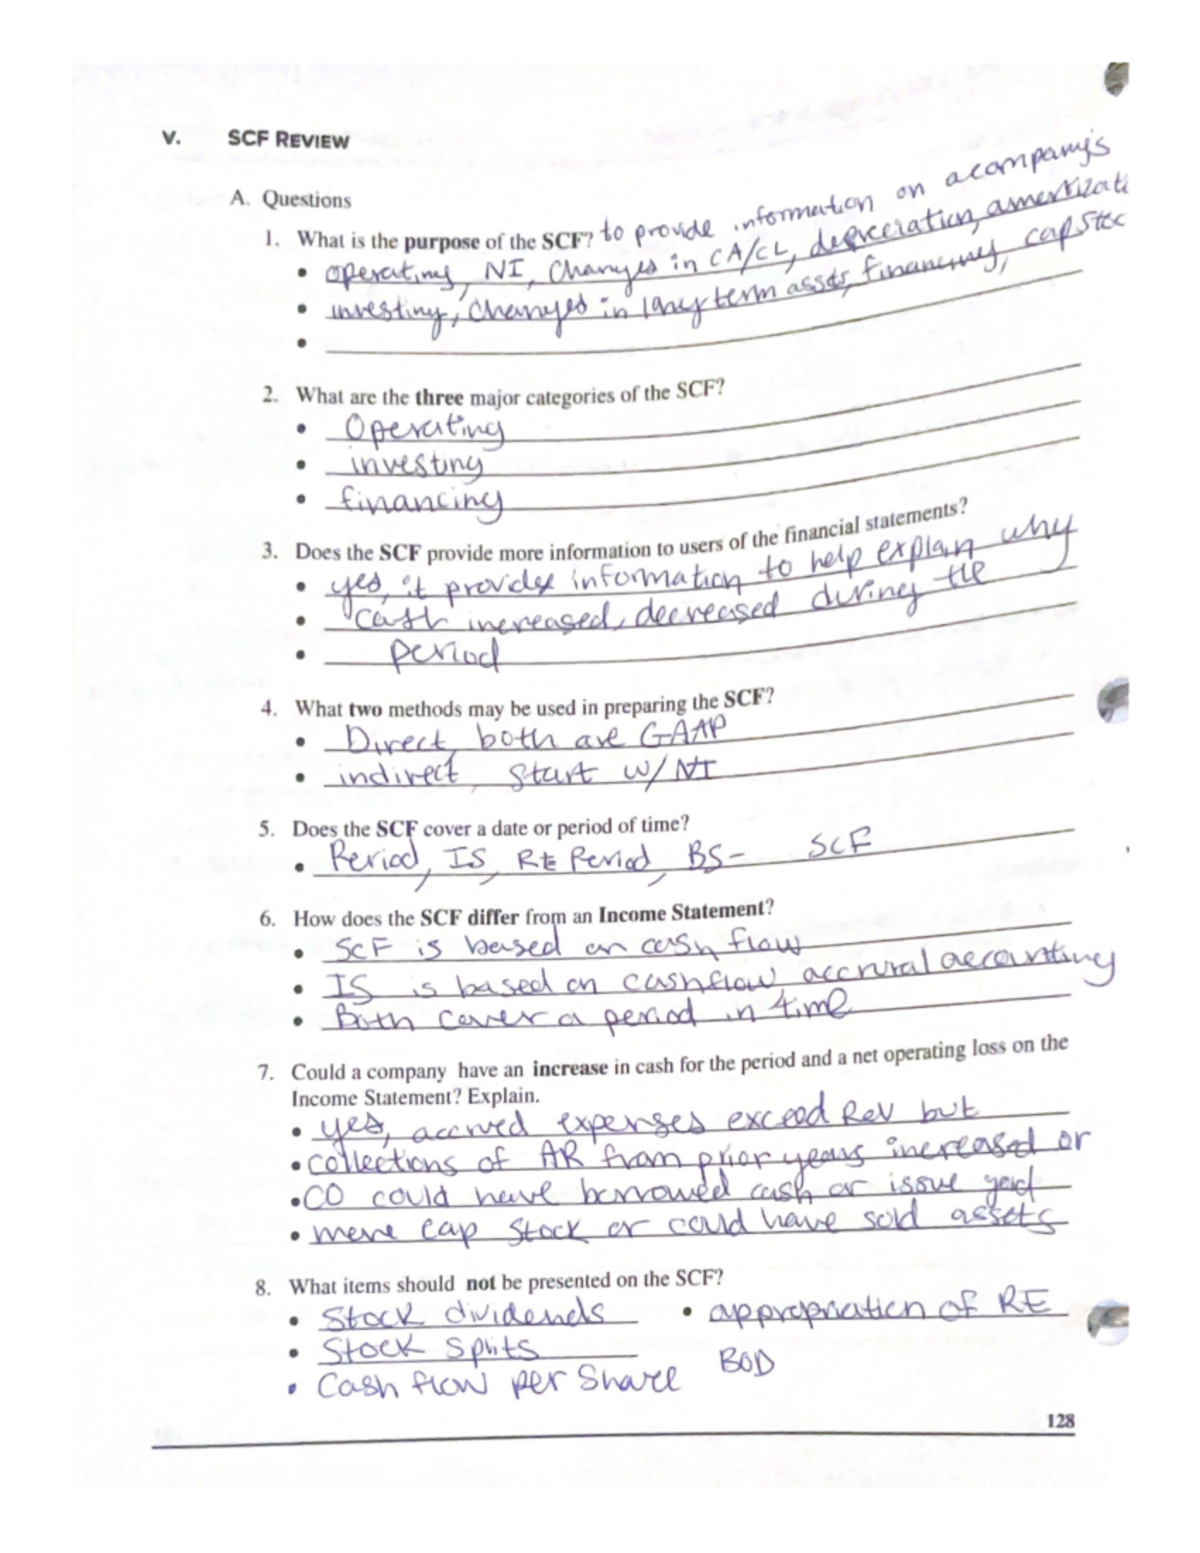 V. SCF REVIEW
A. Questions
1. What is the purpose of the SCF? to provide information on a company's
• operating, NI, Changes in CA/CL, depreceration, amertizati
• investing, changes in long term assets, financing, cap stoc
•
2. What are the three major categories of the SCF?
• Operating
• investing
• financing
3. Does the SCF provide more information to users of the financial statements?
• yes, it provides information to help explain why
• cash increased, decreased during the
• period
4. What two methods may be used in preparing the SCF?
• Direct, both are GAAP
• indirect, Start w/ NI
5. Does the SCF cover a date or period of time?
• Period, IS, RE Period, BS - SCF
6. How does the SCF differ from an Income Statement?
• SCF is based on cash flow
• IS is based on cashflow accrural accounting
• Both cover a period in time
7. Could a company have an increase in cash for the period and a net operating loss on the
Income Statement? Explain.
• yes, accrued expenses exceed Rev but
• collections of AR from prior years increased or
• CO could have borrowed cash or issue
• more cap stock or could have sold assets
8. What items should not be presented on the SCF?
• Stock dividends • appropriation of RE
• Stock splits
• Cash flow per Share BOD
128